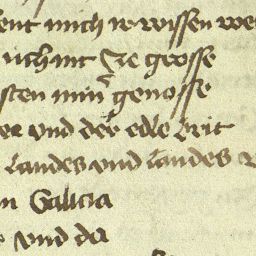 ent mich ir wissen we
nicht Ze grosse
sten min genosse
vnd der edle brit
landes vnd landes
in Gallicia
vnd da